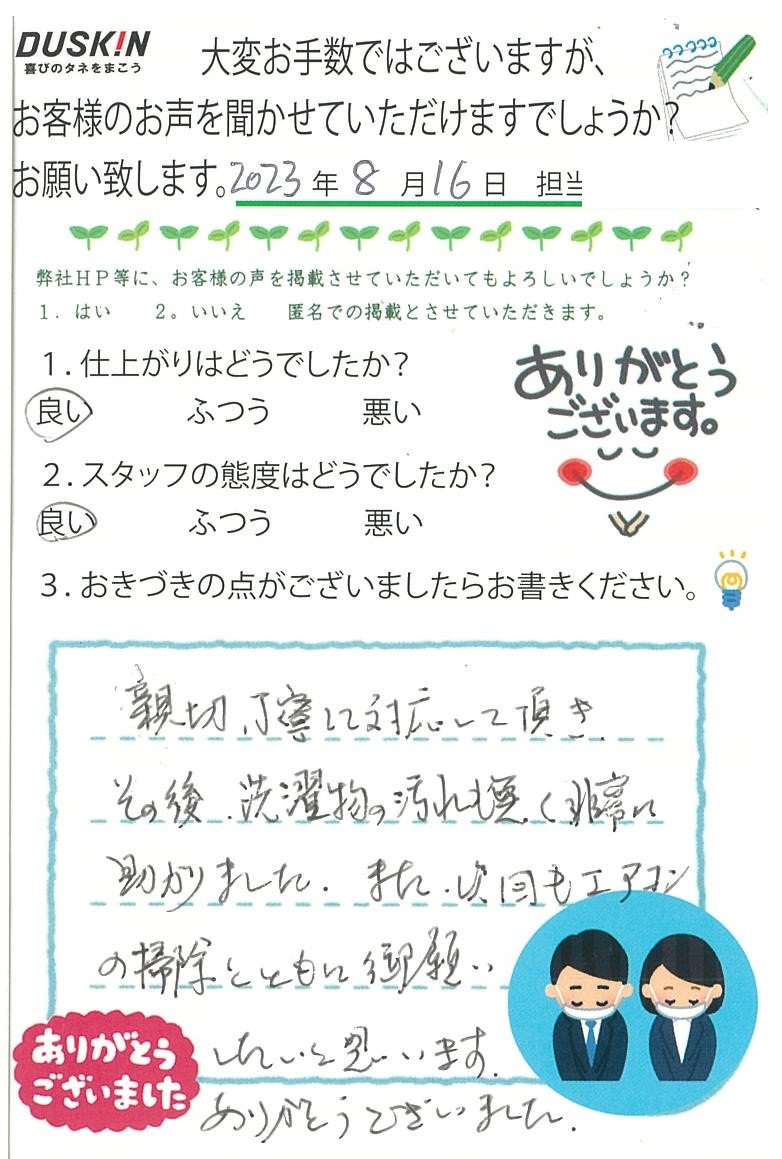 DUSK!N
喜びのタネをまこう
大変お手数ではございますが、
お客様のお声を聞かせていただけますでしょうか？
お願い致します。2023年8月16日 担当
弊社ＨＰ等に、お客様の声を掲載させていただいてもよろしいでしょうか？
１．はい ２。いいえ 匿名での掲載とさせていただきます。
１．仕上がりはどうでしたか？
良い ふつう 悪い
ありがとう
ございます。
２．スタッフの態度はどうでしたか？
良い ふつう 悪い
３．おきづきの点がございましたらお書きください。
親切、丁寧に対応して頂き
その後、洗濯物の汚れも無く非常に
助かりました。また、次回もエアコン
の掃除とともに御願い
したいと思います。
ありがとうございました。
ありがとう
ございました